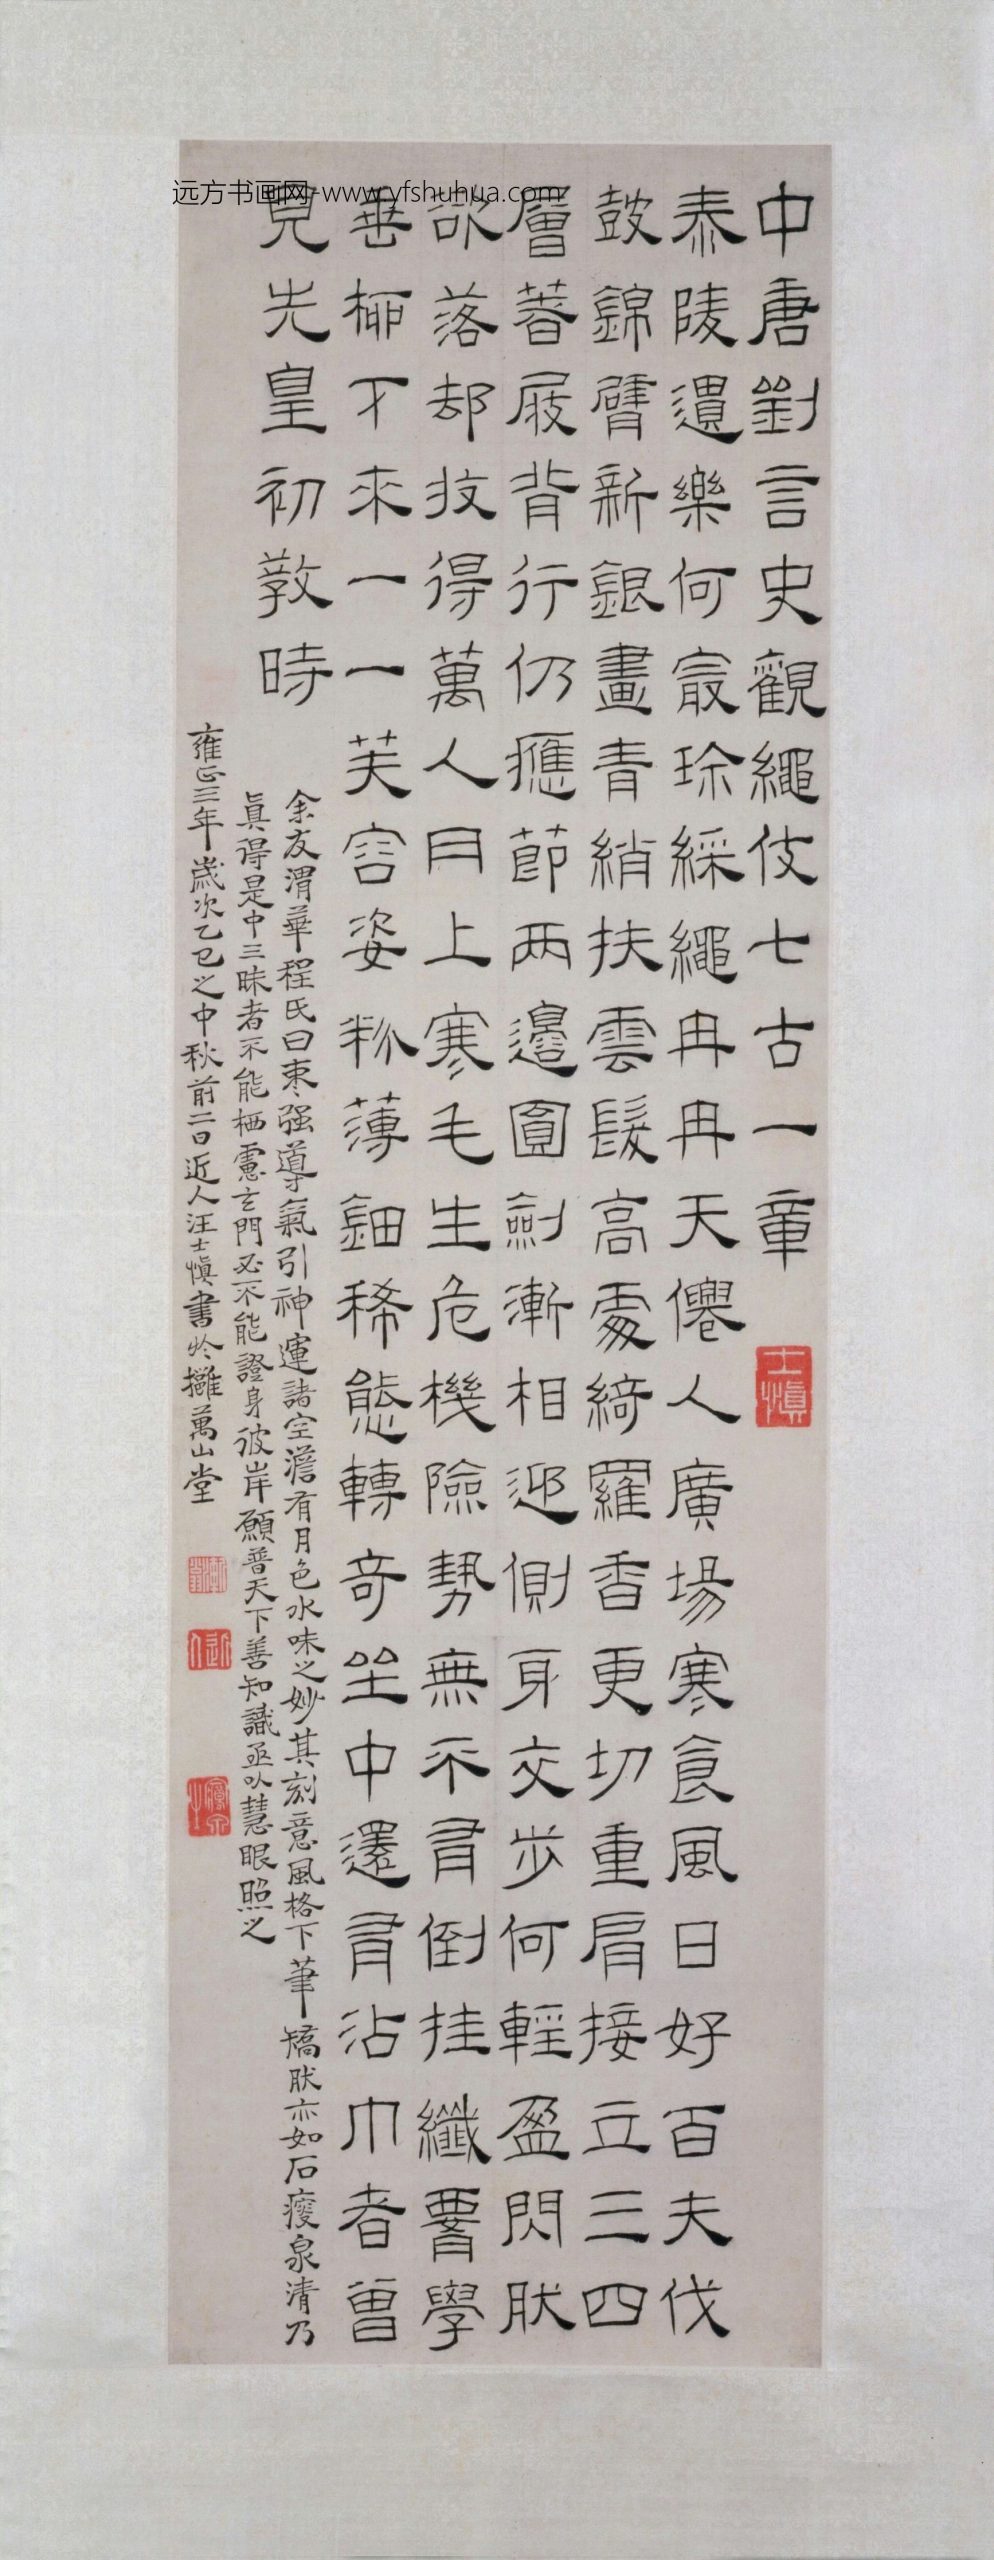 远方书画网-www.yfshuhua.com
中唐劉言史觀繩伎七古一章
士慎
泰陵遺樂何㝡珎綵繩冉冉天僊人廣場寒食風日好百夫伐
鼓錦臂新銀畫青綃抹雲髮高處綺羅香更切重肩接立三四
層著屐背行仍應節兩邊圓劍漸相迎側身交步何輕盈閃肰
欲落却收得萬人冃上寒毛生危機險勢無不肎倒挂纖䙅學
垂桺下來一一芙容姿粉薄鈿稀態轉奇坐中還肎沾巾者曾
見先皇初教時
余友渭華程氏曰棗强導氣引神運諸空澹有月色水味之妙其刻意風格下筆矯肰亦如石瘦泉清乃
眞得是中三昧者不能栖慮玄門必不能證身彼岸願普天下善知識亟以慧眼照之
雍正三年歲次乙巳之中秋前二日近人汪士慎書於攤萬山堂
近人